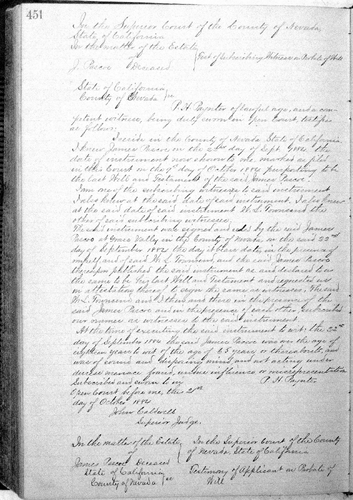 451
In the Superior Court of the County of Nevada,
State of California
In the matter of the Estate
of
J. Pascoe Deceased
Test of Subscribing Witness on Probate of Will
State of California,
County of Nevada } ss
P. H. Paynter of lawful age, and a com
petent witness, being duly sworn in Open Court, testifies
as follows:
I reside in the County of Nevada, State of California.
I knew James Pascoe on the 22nd day of Sept. 1884 the
date of instrument now shown to me, marked as filed
in this Court on the day of October 1884 purporting to be
the Last Will and Testament of the said James Pascoe.
I am one of the subscribing witnesses to said instrument.
I also knew at the said date of said instrument,
at the said date of said instrument W. L. Townsend the
other of said subscribing witnesses.
The said instrument was signed and by the said James
Pascoe at Grass Valley in the County of Nevada on the said 22nd
day of September 1884 the day of these date, in the presence of
myself and of said W. L. Townsend, and the said James Pascoe
thereupon published the said instrument as and declared to us
the same to be his Last Will and Testament and requested us
in attestation thereof to sign the same as witnesses. The said
W. L. Townsend and I then and there in the presence of the
said James Pascoe and in the presence of each other subscribed
our names as witnesses to the said instrument.
At the time of executing the said instrument to wit: the 22nd
day of September 1884 the said James Pascoe was over the age of
eighteen years to wit of the age of 63 years or thereabouts and
was of sound and disposing mind and not acting under
duress menace fraud, undue influence or misrepresentation
Subscribed and sworn to in P. H. Paynter
Open Court before me, this
day of October 1884
John Caldwell
Superior Judge.
In the matter of the Estate
of
James Pascoe Deceased
In the Superior Court of the County
of Nevada, State of California
State of California
County of Nevada } ss
Testimony of Applicant on Probate of
Will